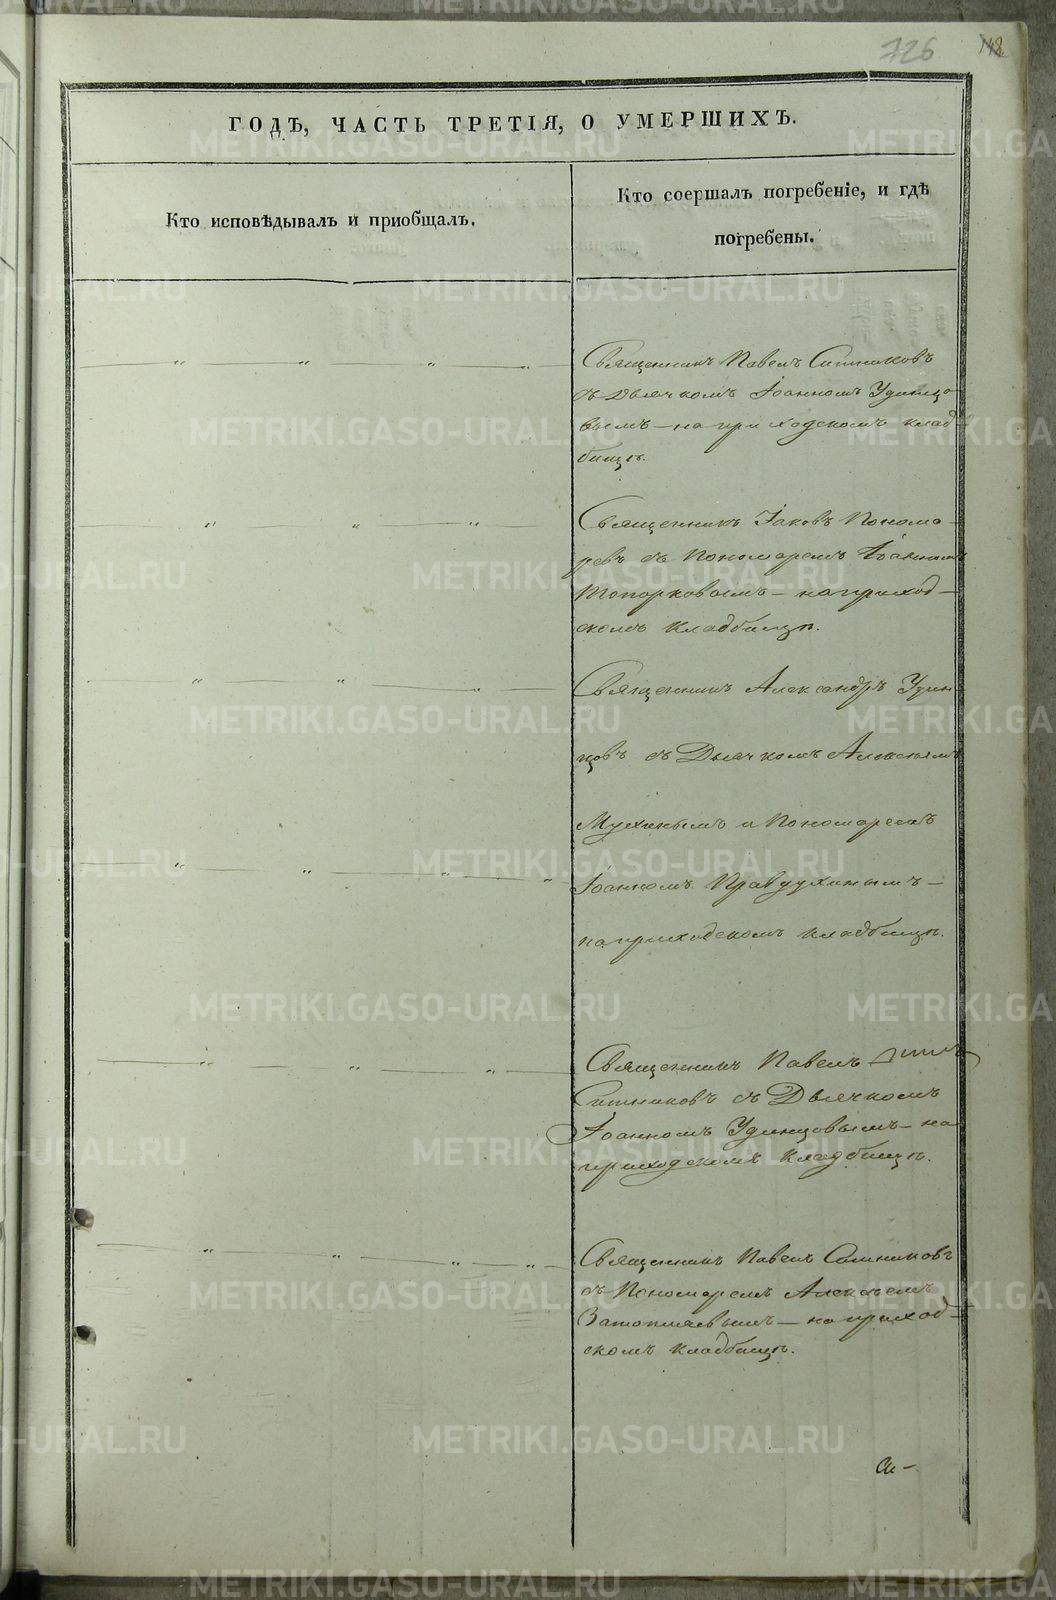 726 142
ГОДѢ, ЧАСТЬ ТРЕТІЯ, О УМЕРШИХЪ.
Кто исповѣдывалъ и приобщалъ.
Кто соершалъ погребеніе, и гдѣ
погребены.
Священникъ Павелъ Ситниковъ
съ Дьячкомъ Іоанномъ Удинцо-
вымъ — на приходскомъ клад-
бищѣ.
Священникъ Іаковъ Понома-
ревъ съ Пономаремъ Іоанномъ
Топорковымъ — на приход-
скомъ кладбищѣ.
Священникъ Александръ Удин-
цовъ съ Дьячкомъ Алексѣемъ
Мухинымъ и Пономаремъ
Іоанномъ Правдухинымъ —
на приходскомъ кладбищѣ.
Священникъ Павелъ
Ситниковъ съ Дьячкомъ
Іоанномъ Удинцовымъ — на
приходскомъ кладбищѣ.
Священникъ Павелъ Ситниковъ
съ Пономаремъ Алексѣемъ
Затопляевымъ — на приход-
скомъ кладбищѣ.
METRIKI.GASO-URAL.RU